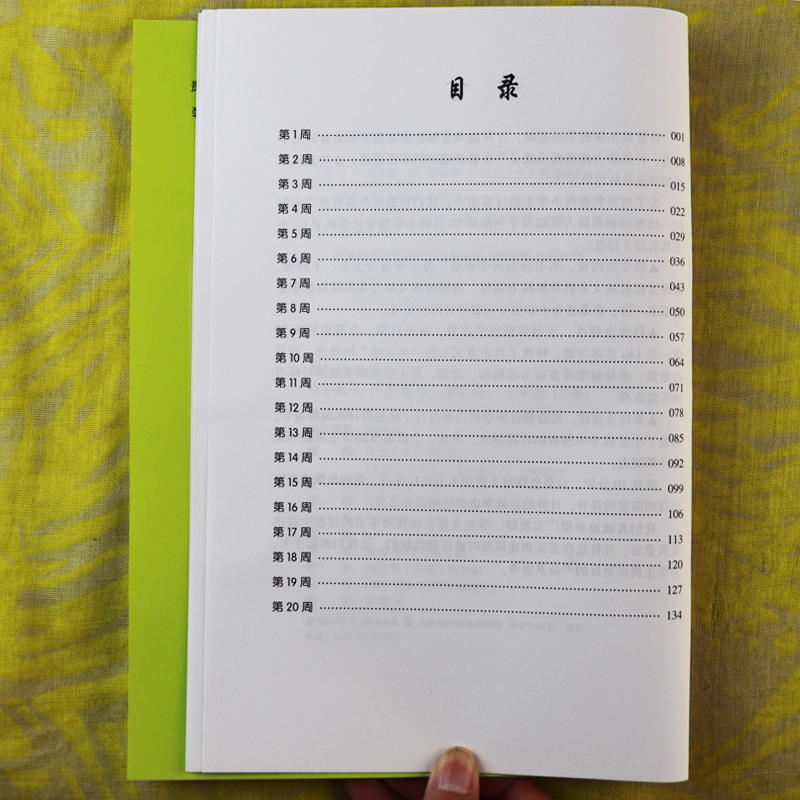 目 录
第 1 周 001
第 2 周 008
第 3 周 015
第 4 周 022
第 5 周 029
第 6 周 036
第 7 周 043
第 8 周 050
第 9 周 057
第 10 周 064
第 11 周 071
第 12 周 078
第 13 周 085
第 14 周 092
第 15 周 099
第 16 周 106
第 17 周 113
第 18 周 120
第 19 周 127
第 20 周 134